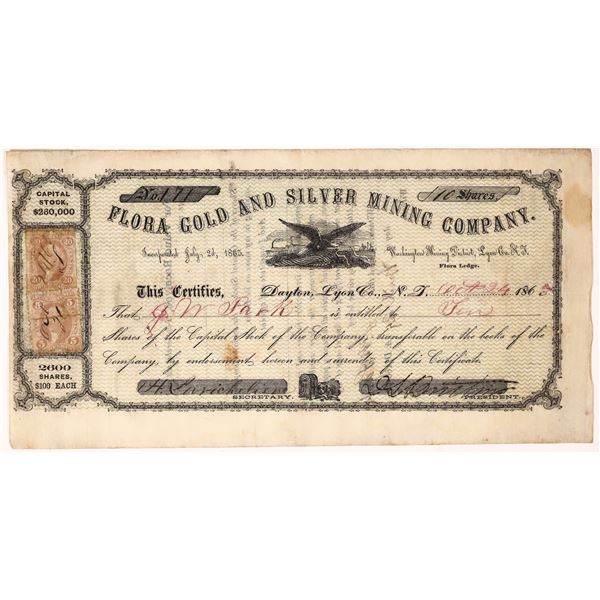 CAPITAL
STOCK,
$260,000
No. 171
10 Shares.
FLORA GOLD AND SILVER MINING COMPANY.
Incorporated July 2d, 1863.
Washington Mining District, Lyon Co. N.T.
Flora Ledge.
This Certifies, Dayton, Lyon Co., N. T. Oct 24 1863
That J W Park is entitled to Ten
Shares of the Capital Stock of the Company, Transferable on the books of the
Company, by endorsement hereon and surrender of this Certificate.
SECRETARY.
PRESIDENT.
20
20
5
5
2600
SHARES,
$100 EACH